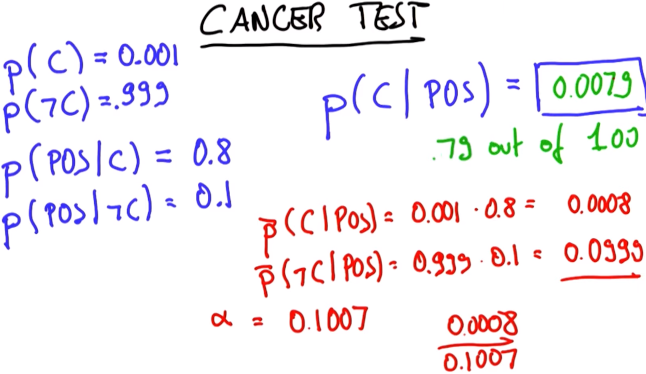 CANCER TEST
p(C) = 0.001
p(¬C) = .999
p(POS|C) = 0.8
p(POS|¬C) = 0.1
p(C|POS) = 0.0079
.79 out of 100
p̅(C|POS) = 0.001 · 0.8 = 0.0008
p̅(¬C|POS) = 0.999 · 0.1 = 0.0999
α = 0.1007
0.0008
0.1007